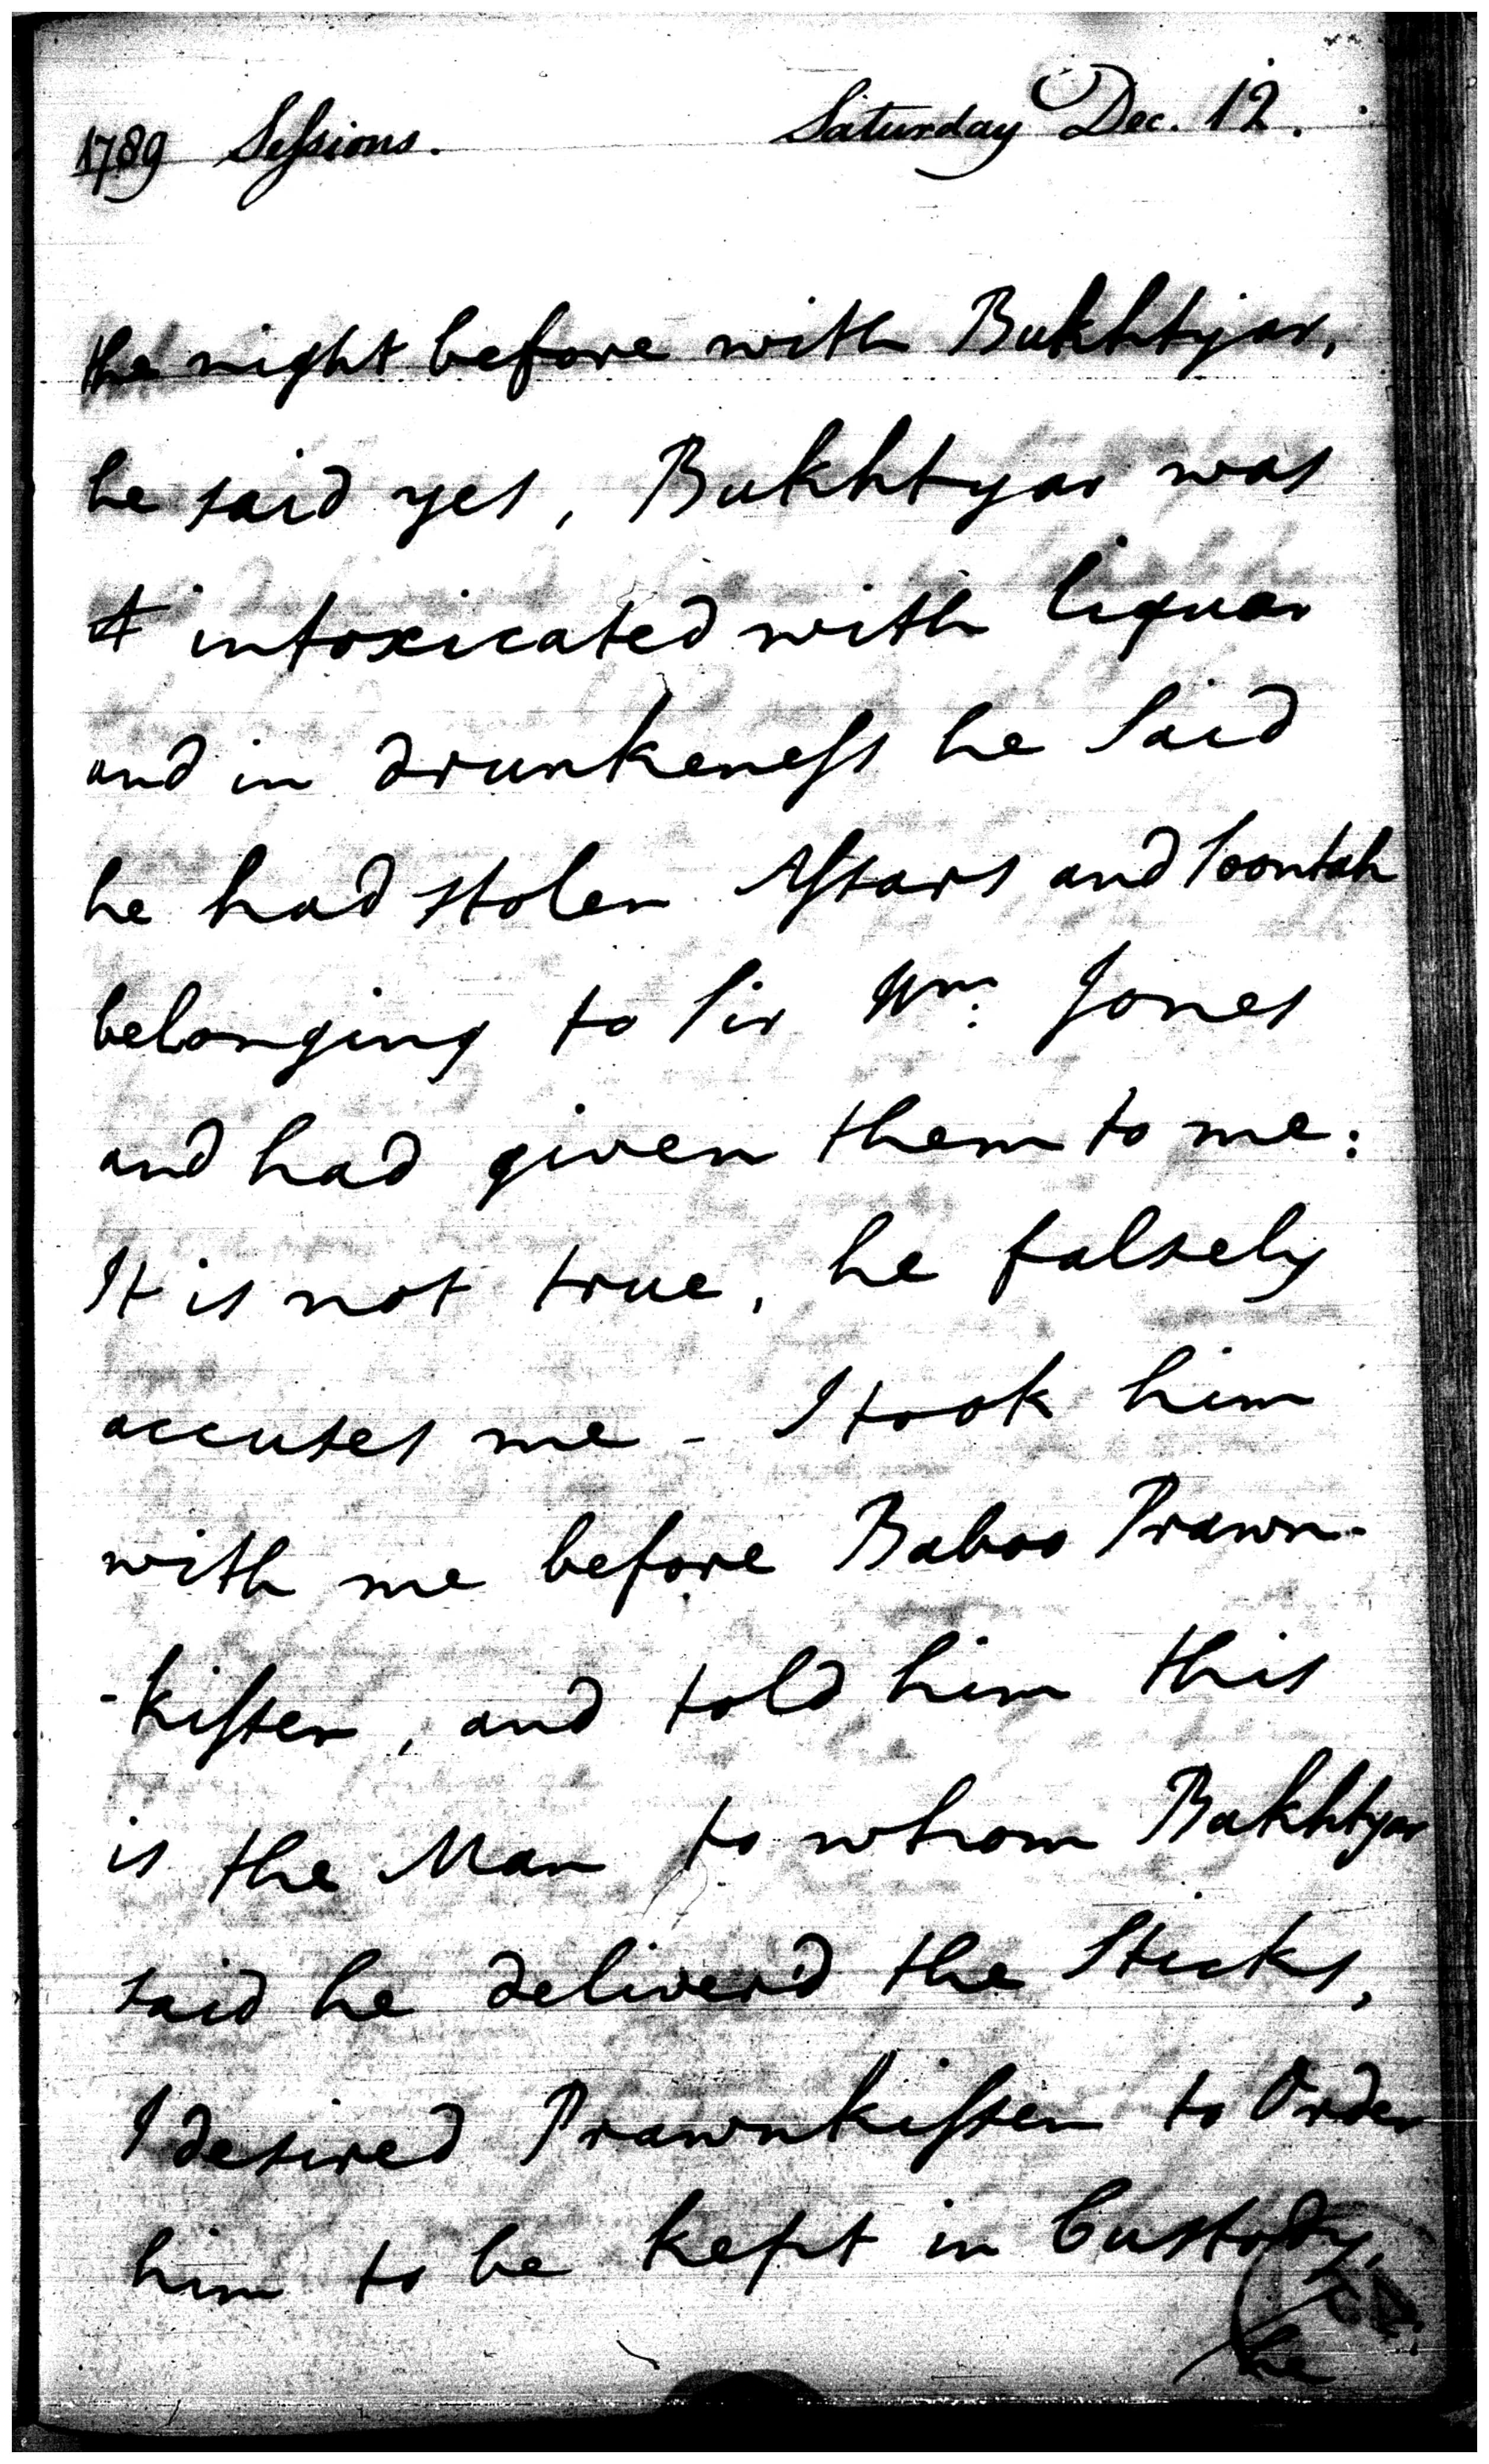 1789 Sessions. Saturday Dec. 12.
the night before with Bukhtyar,
he said yes, Bukhtyar was
intoxicated with liquor
and in drunkeness he said
he had stolen Assars and Soontah
belonging to Sir Wm: Jones
and had given them to me:
It is not true, he falsely
accuses me - I took him
with me before Baboo Prawn-
-kissen, and told him this
is the Man to whom Bukhtyar
said he deliverd the Sticks,
I desired Prawnkissen to Order
him to be kept in Custody,
he